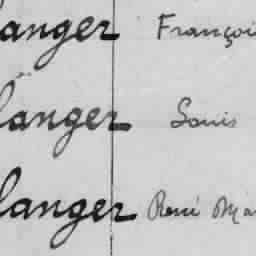 langer Françoi
langer Louis
langer René Ma